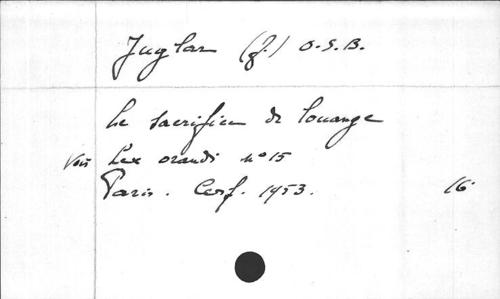 Juglar (J.) O.S.B.
Le sacrifice de louange
Voir Lex orandi n° 15
Paris. Cerf. 1953. 16